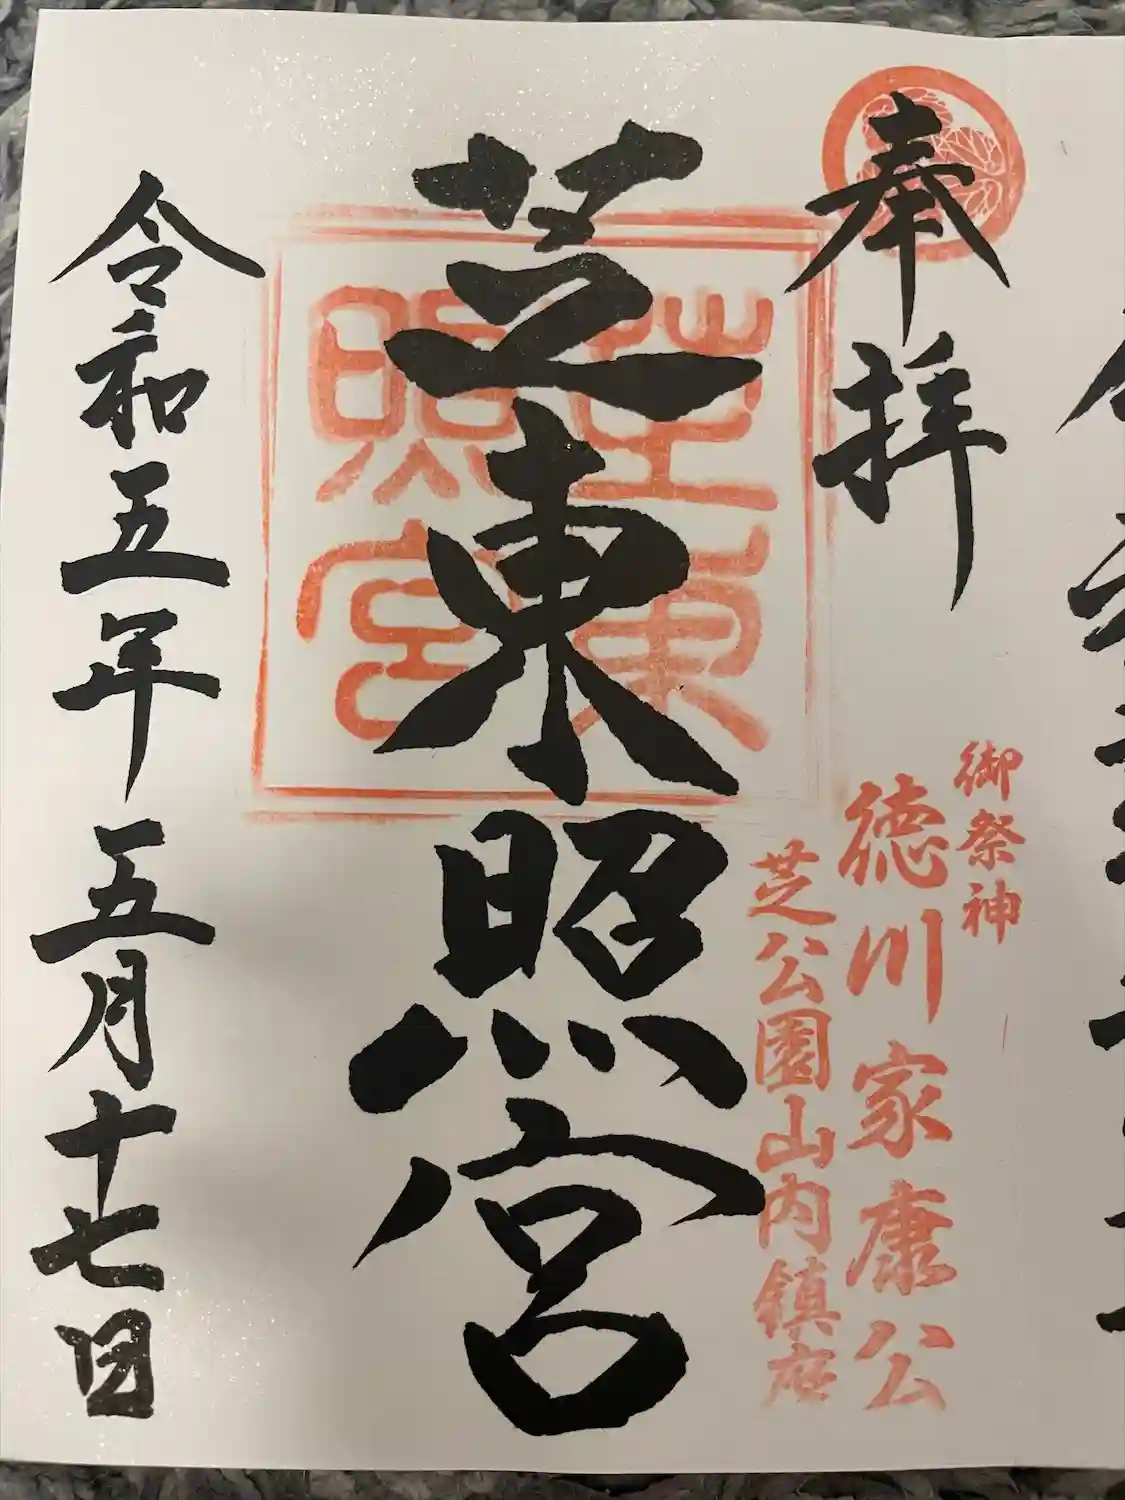 奉拝
御祭神
徳川家康公
芝公園山内鎮座
芝東照宮
芝東
照宮
令和五年五月十七日